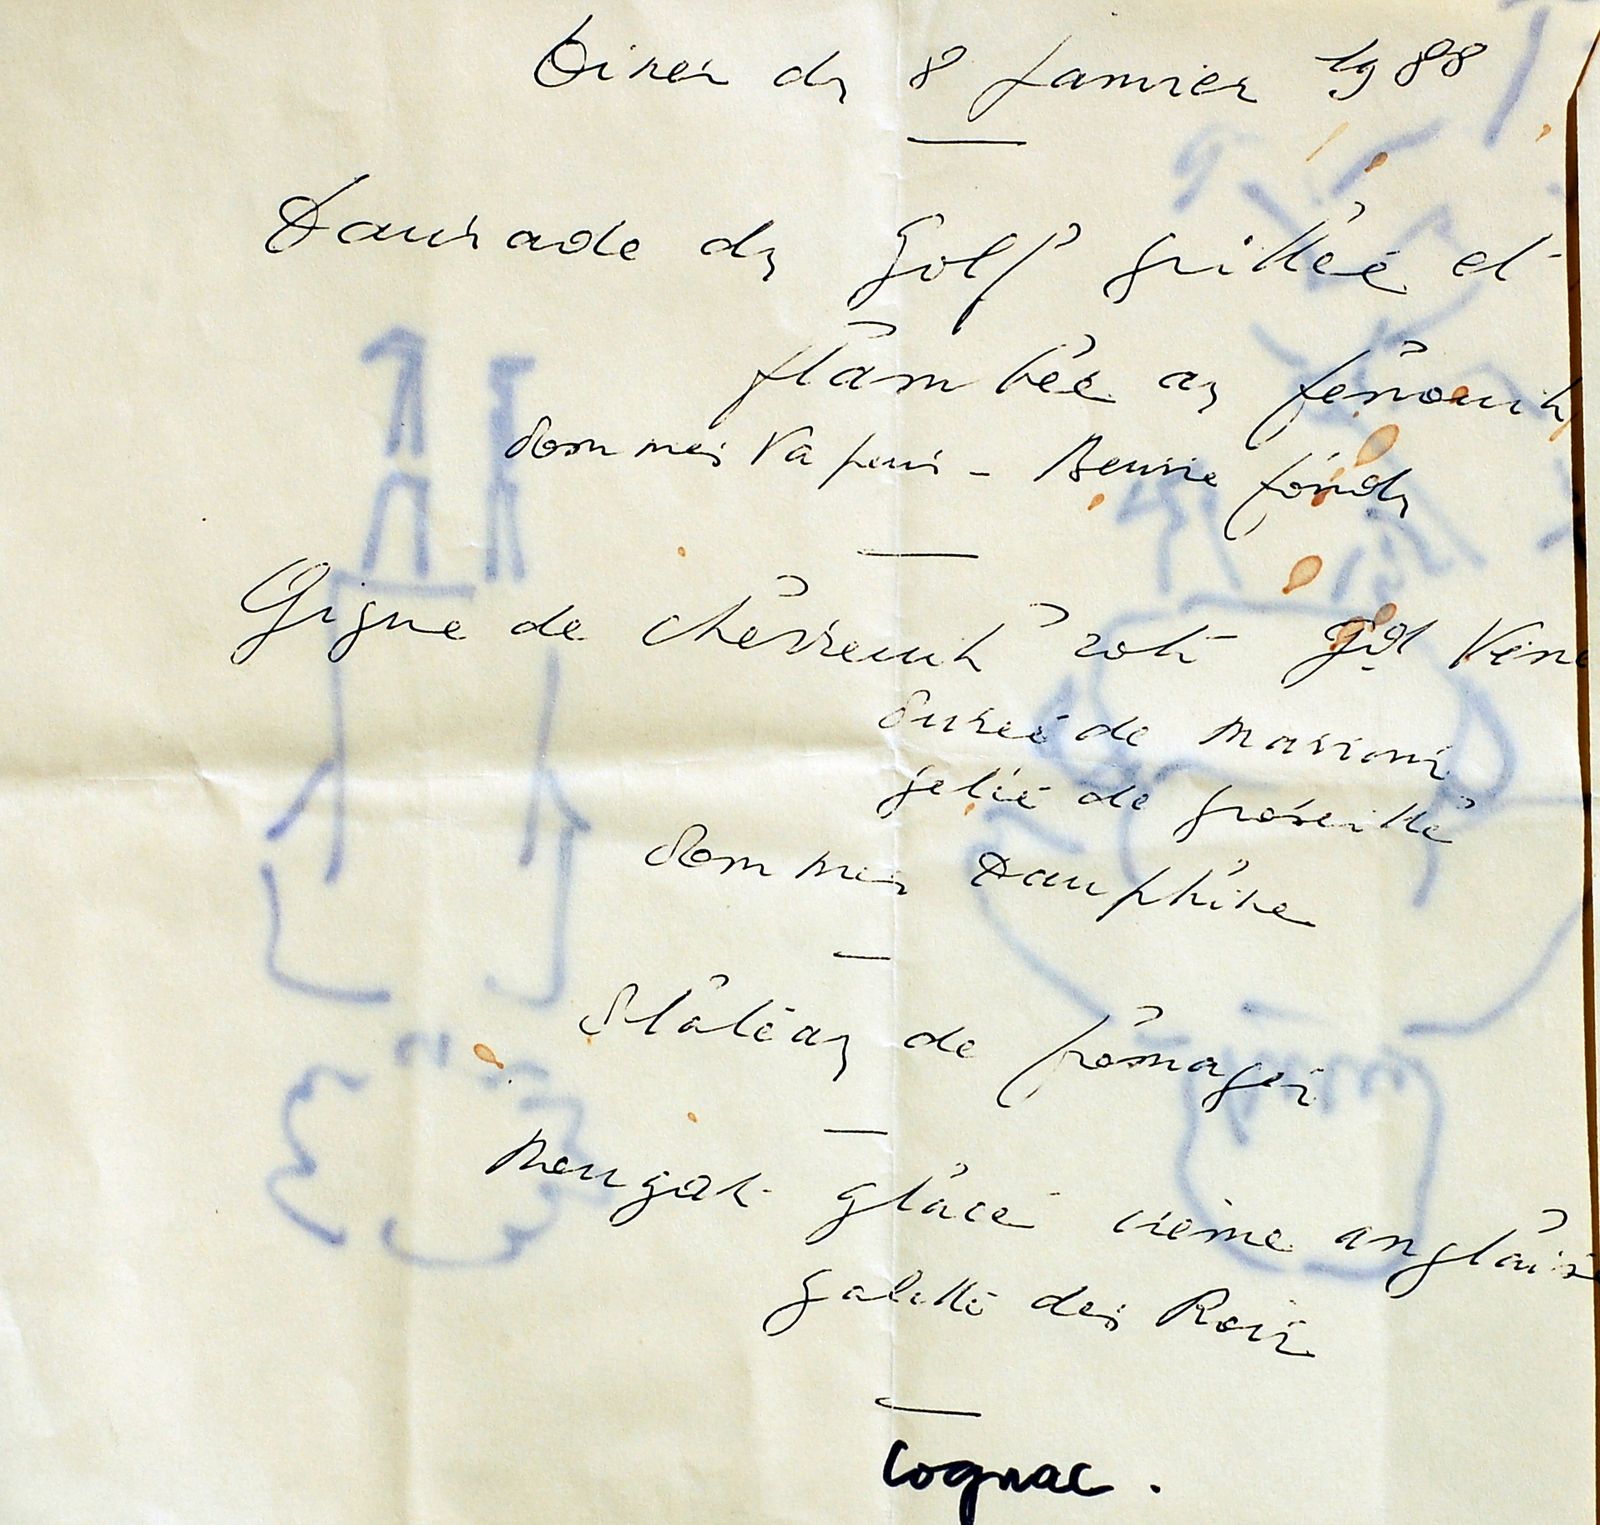 Diner du 8 Janvier 1988
Daurade du Golf grillée et
flambée au fenouil
Pommes Vapeur - Beurre fondu
Gigue de chevreuil roti Gd Vene
Purée de marrons
gelée de groseille
Pommes Dauphine
Plateau de fromages
Nougat glacé crème anglaise
galette des Rois
Cognac.